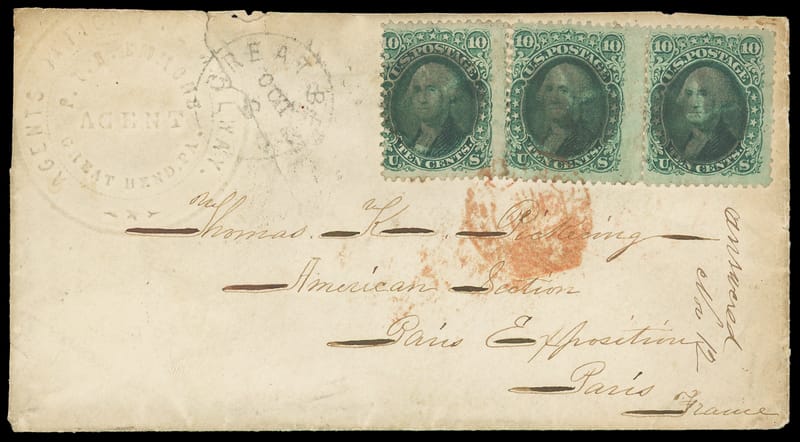 AGENTS
AGENT
GREAT BEND, PA.
GREAT B
OCT
10 10
U.S. POSTAGE
U TEN CENTS. S
10 10
U.S. POSTAGE
U TEN CENTS. S
10 10
U.S. POSTAGE
U TEN CENTS. S
Mr Thomas K. Pickering
American Section
Paris Exposition
Paris
France
answered
Nov 12